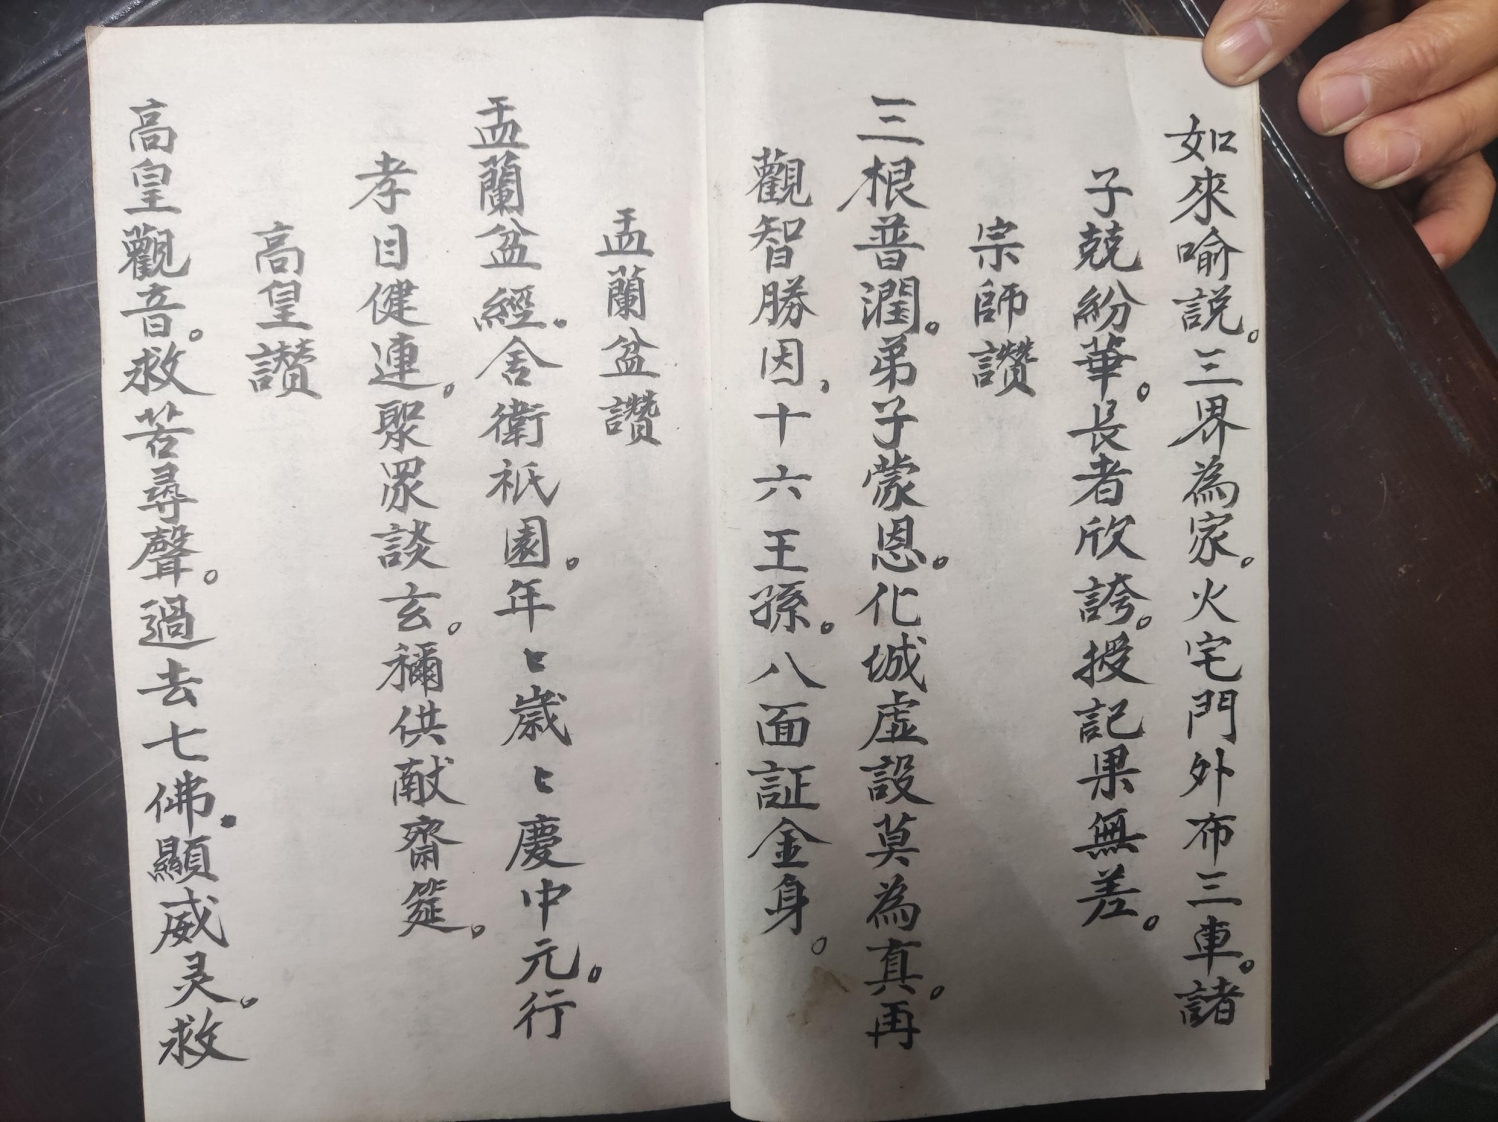 如來喻説。三界為家。火宅門外布三車。諸
子兢紛華。長者欣誇。授記果無差。
宗師讚
三根普潤。弟子蒙恩。化城虛設莫為真。再
觀智勝因、十六王孫。八面証金身。
盂蘭盆讚
盂蘭盆經。舍衛衹園。年〻歲〻慶中元。行
孝目健連。聚眾談玄。襧供献齋筵。
高皇讚
高皇觀音。救苦尋聲。過去七佛。顯威灵。救